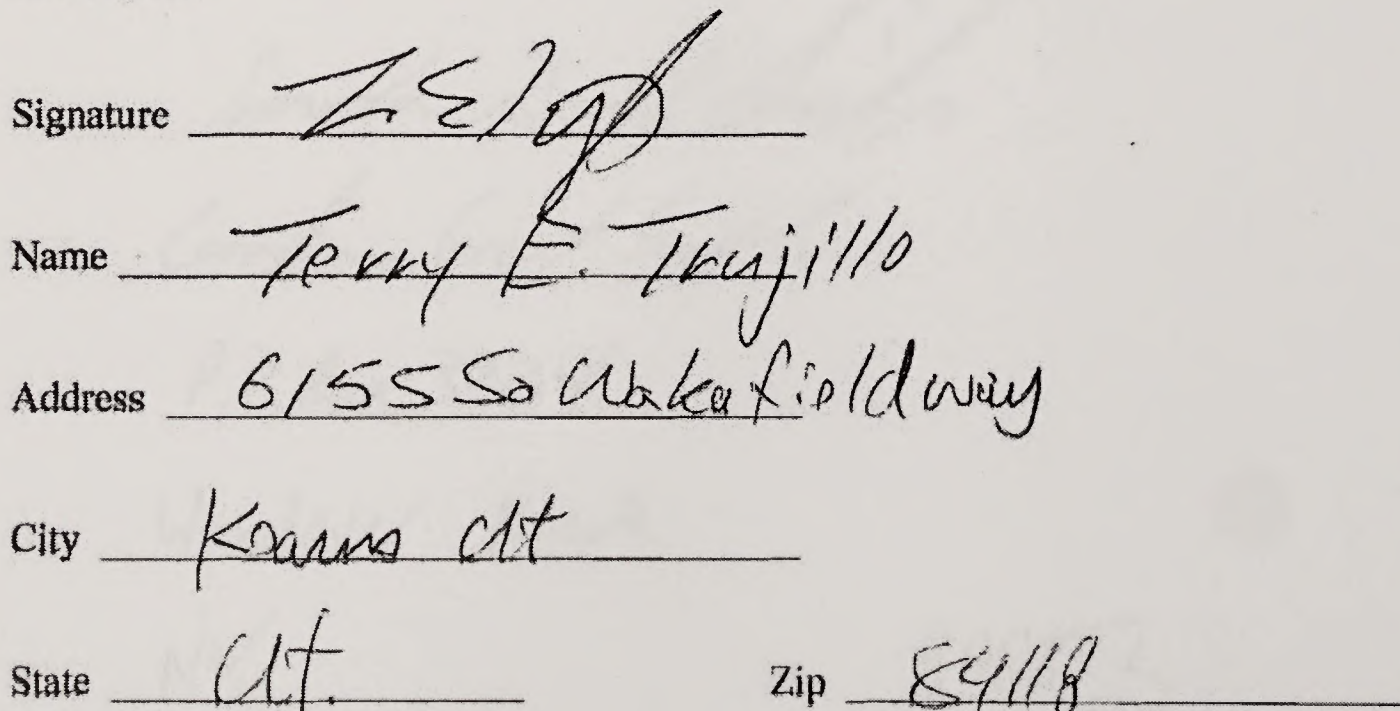 Signature
Name Terry E. Trujillo
Address 6155 So Wakefield way
City Kearns Ut
State Ut. Zip 84118